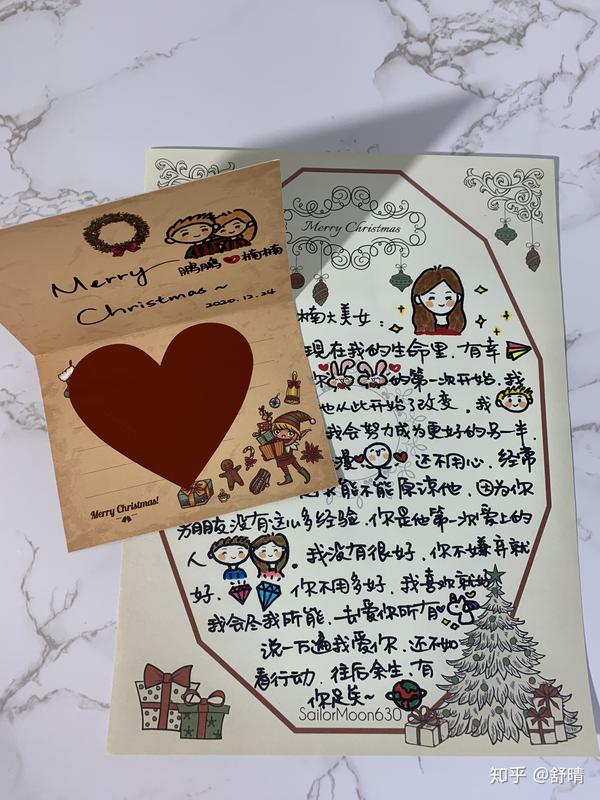 Merry
鹏鹏 楠楠
Christmas~
2020.12.24
Merry Christmas!
Merry Christmas
楠大美女：
现在我的生命里.有幸
你 的第一次开始.我
也从此开始了改变.我
我会努力成为更好的另一半.
漫 还不用心.经常
能不能原谅他.因为你
男朋友没有这么多经验.你是他第一次爱上的
人 .我没有很好.你不嫌弃就
好. 你不用多好.我喜欢就好
我会尽我所能.去爱你所有
说一万遍我爱你.还不如
看行动.往后余生.有
你足矣~
SailorMoon630
知乎 @舒晴